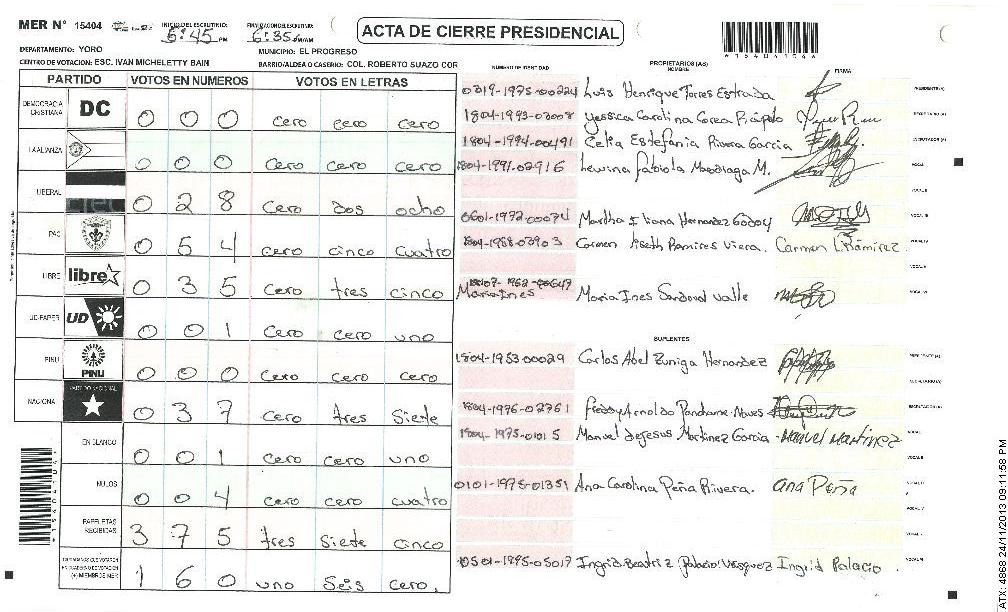 MER N° 15404
INICIO DEL ESCRUTINIO: 5:45 PM
FINALIZACION DEL ESCRUTINIO: 6:35 PM/AM
ACTA DE CIERRE PRESIDENCIAL
DEPARTAMENTO: YORO
MUNICIPIO: EL PROGRESO
CENTRO DE VOTACION: ESC. IVAN MICHELETTY BAIN
BARRIO/ALDEA O CASERIO: COL. ROBERTO SUAZO COR
PARTIDO VOTOS EN NUMEROS VOTOS EN LETRAS
DEMOCRACIA CRISTIANA DC 0 0 0 cero cero cero
LA ALIANZA 0 0 0 cero cero cero
LIBERAL 0 2 8 cero dos ocho
PAC 0 5 4 cero cinco cuatro
LIBRE libre 0 3 5 cero tres cinco
UD-FAPER UD 0 0 1 cero cero uno
PINU PINU 0 0 0 cero cero cero
NACIONA PARTIDO NACIONAL 0 3 7 cero tres siete
EN BLANCO 0 0 1 cero cero uno
NULOS 0 0 4 cero cero cuatro
PAPELETAS RECIBIDAS 3 7 5 tres siete cinco
(+) MIEMBROS MER 1 6 0 uno seis cero.
NUMERO DE IDENTIDAD PROPIETARIOS (AS) NOMBRE FIRMA
0319-1975-00224 Luis Henrique Torres Estrada
1804-1993-03008 Yessica Carolina Corea
1804-1994-00491 Celia Estefania Rivera Garcia
1804-1991-02916 Fabiola M.
0601-1972-00074 Martha Iliana Hernandez Godoy
1804-1988-03903 Carmen Liseth Ramires Viera. Carmen L Ramirez
Maria Ines Maria Ines Sandoval Valle
SUPLENTES
1804-1953-00029 Carlos Abel Zuniga Hernandez
1804-1976-02761 Freddy Arnoldo
1804-1975-01015 Manuel de jesus Martinez Garcia Manuel Martinez
0101-1975-01351 Ana Carolina Peña Rivera. Ana Peña
0501-1995-05017 Ingrid Beatriz Palacio Vasquez Ingrid Palacio.
ATX: 4868 24/11/2013 09:11:58 PM